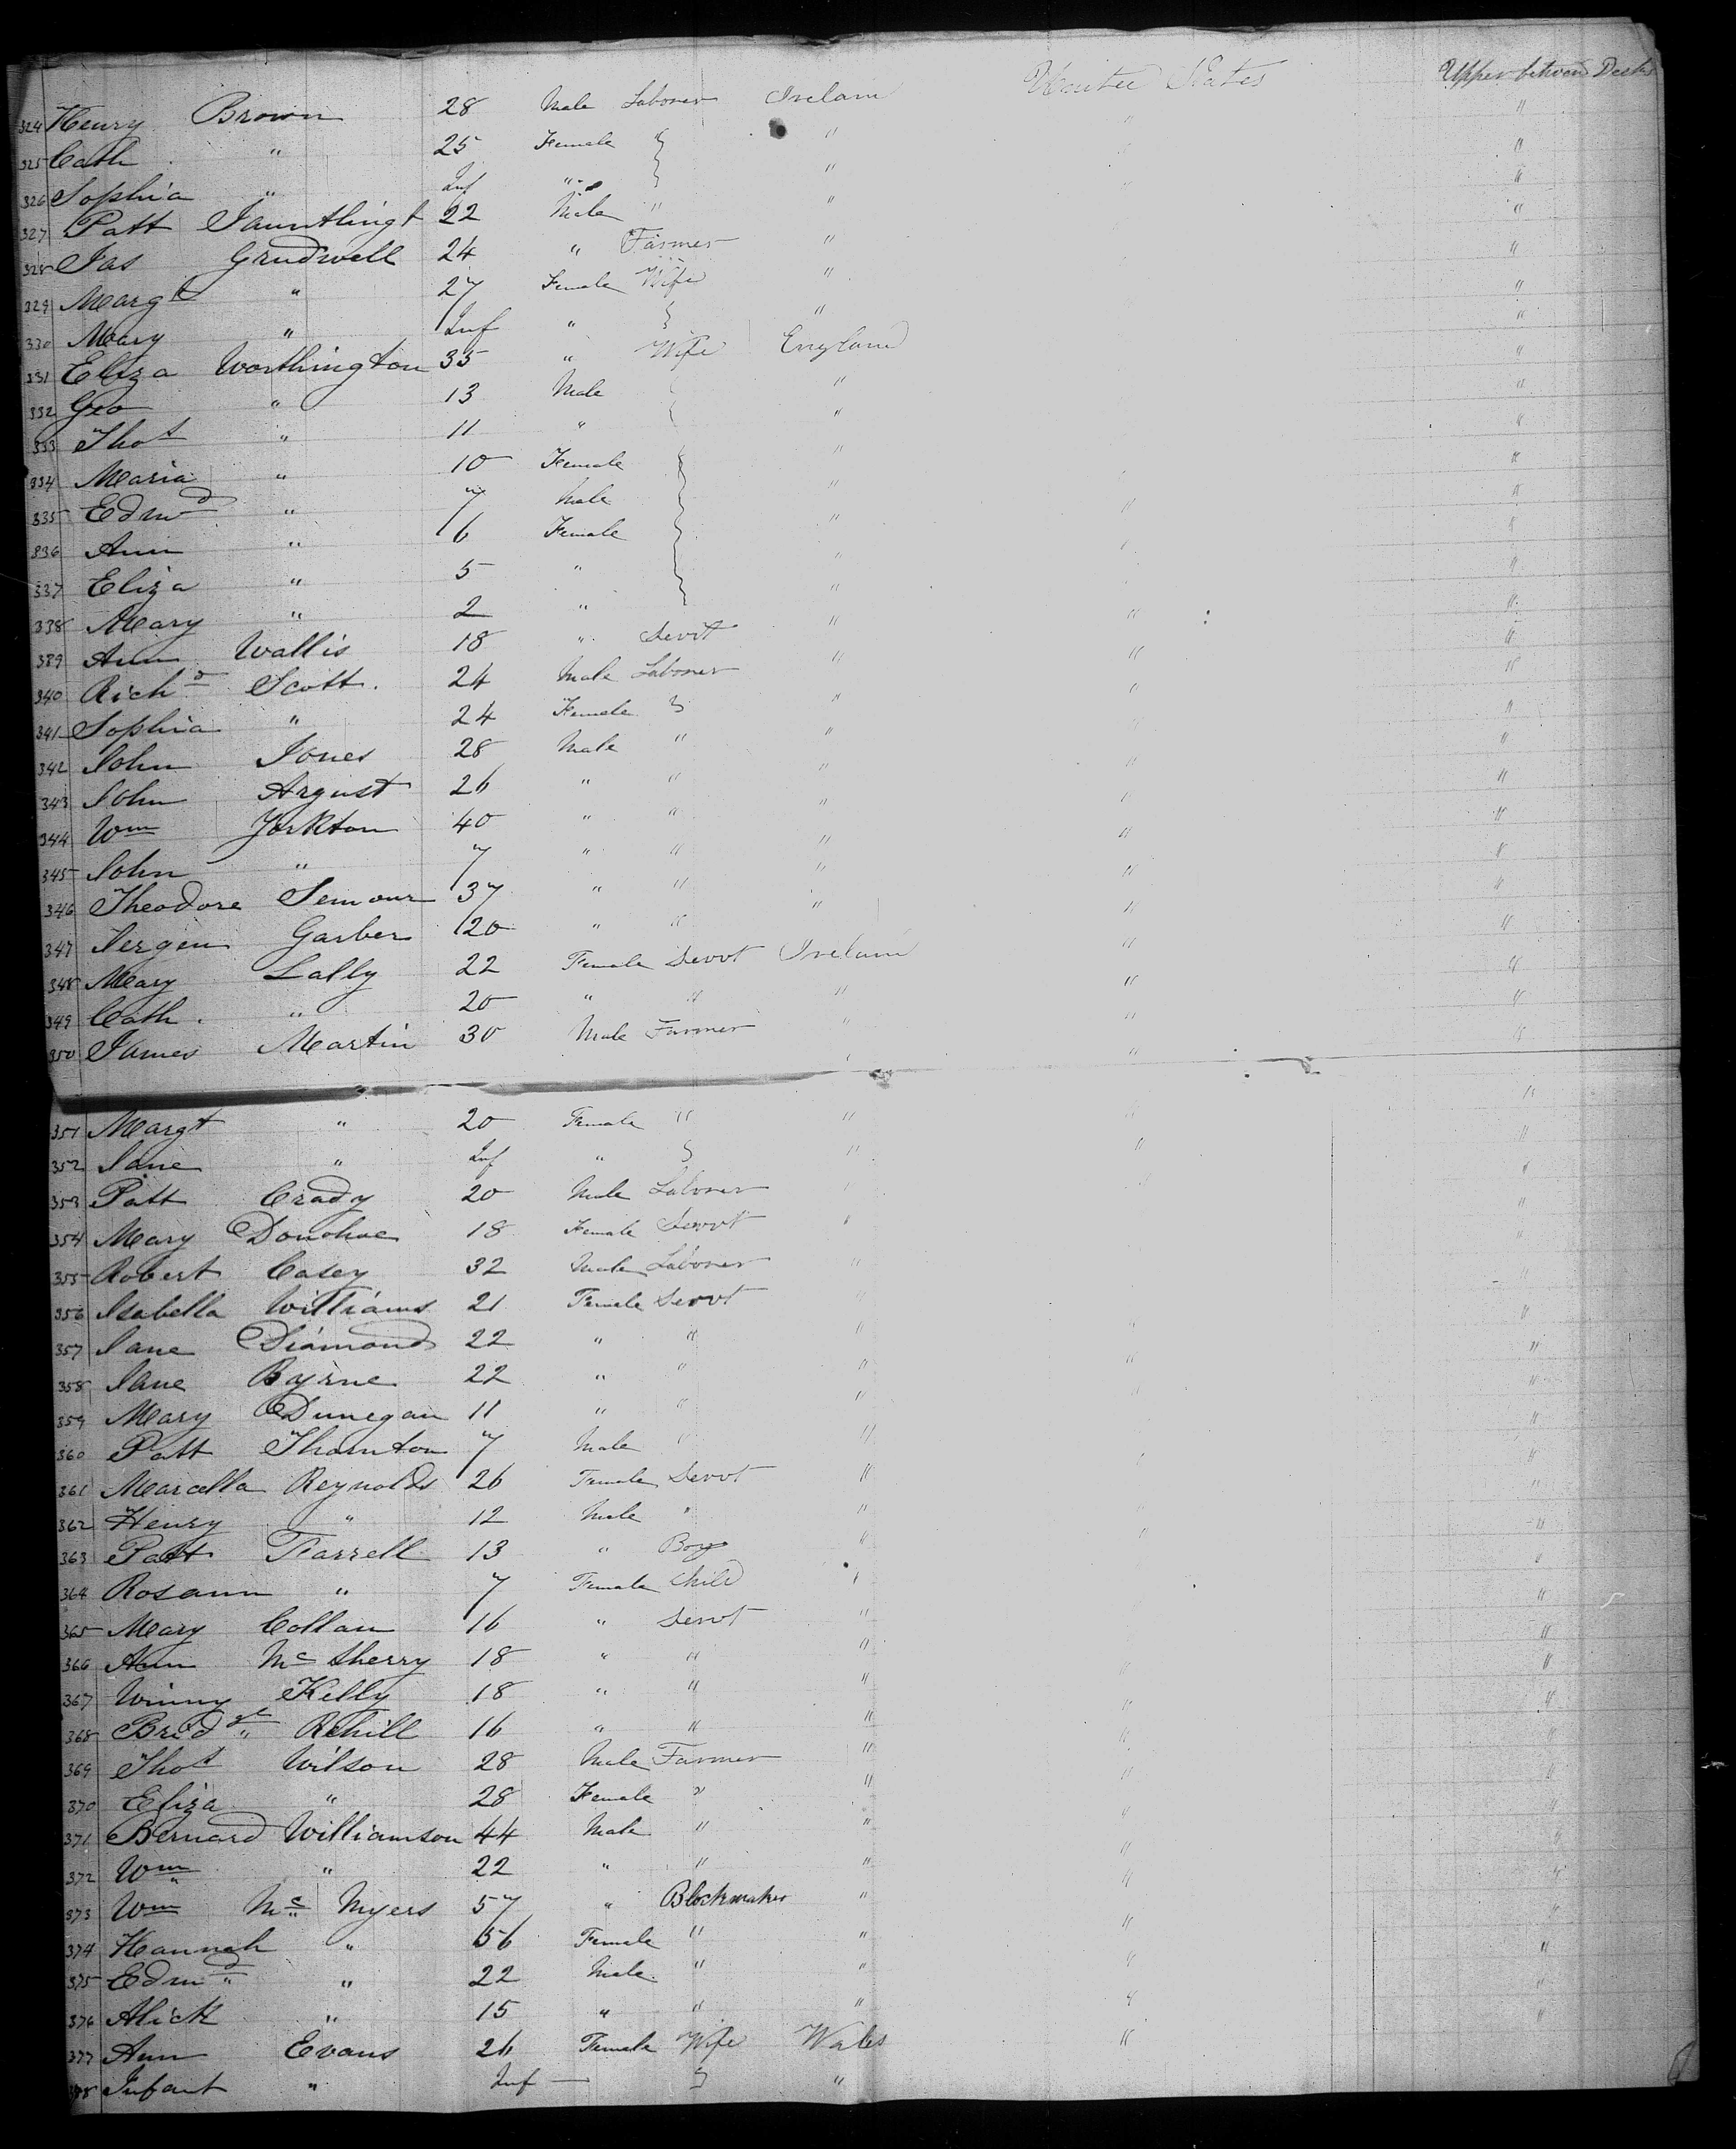 324 Henry Brown 28 Male Laborer Ireland United States Upper between Decks
325 Cath " 25 Female " "
326 Sophia " Inf " " "
327 Patt 22 Male " " "
328 Jas Grudwell 24 " Farmer " "
329 Margt " 27 Female Wife " "
330 Mary " Inf " " "
331 Eliza Worthington 35 " Wife England "
332 Geo " 13 Male " "
333 Thos " 11 " " "
334 Maria " 10 Female " "
335 Edmd " 7 Male " " "
336 Ann " 6 Female " " "
337 Eliza " 5 " " "
338 Mary " 2 " " " "
339 Ann Wallis 18 " Servt " " "
340 Richd Scott 24 Male Laborer " " "
341 Sophia " 24 Female " "
342 John Jones 28 Male " " "
343 John Argust 26 " " " " "
344 Wm Yorkton 40 " " " " "
345 John " 7 " " " " "
346 Theodore Semour 37 " " " " "
347 Jergen Garber 20 " " " " "
348 Mary Lally 22 Female Servt Ireland " "
349 Cath " 20 " " " " "
350 James Martin 30 Male Farmer " " "
351 Margt " 20 Female " " "
352 Jane " Inf " " " "
353 Patt Crady 20 Male Laborer " "
354 Mary Donohoe 18 Female Servt " "
355 Robert Casey 32 Male Laborer " "
356 Isabella Williams 21 Female Servt " "
357 Jane Diamond 22 " " " "
358 Jane Byrne 22 " " " " "
359 Mary Dunegan 11 " " " "
360 Patt Thornton 7 Male " " "
361 Marcella Reynolds 26 Female Servt " "
362 Henry " 12 Male " " "
363 Patt Farrell 13 " Boy " " "
364 Rosann " 7 Female Child " "
365 Mary Collan 16 " Servt " "
366 Ann Mc Sherry 18 " " " "
367 Winny Kelly 18 " " " "
368 Bridgt Rehill 16 " " " " "
369 Thos Wilson 28 Male Farmer " " "
370 Eliza " 28 Female " " " "
371 Bernard Williamson 44 Male " " " "
372 Wm " 22 " " " " "
373 Wm Mc Myers 57 " Blockmaker " " "
374 Hannah " 56 Female " " " "
375 Edmd " 22 Male " " " "
376 Alick " 15 " " " " "
377 Ann Evans 26 Female Wife Wales "
Infant " Inf "